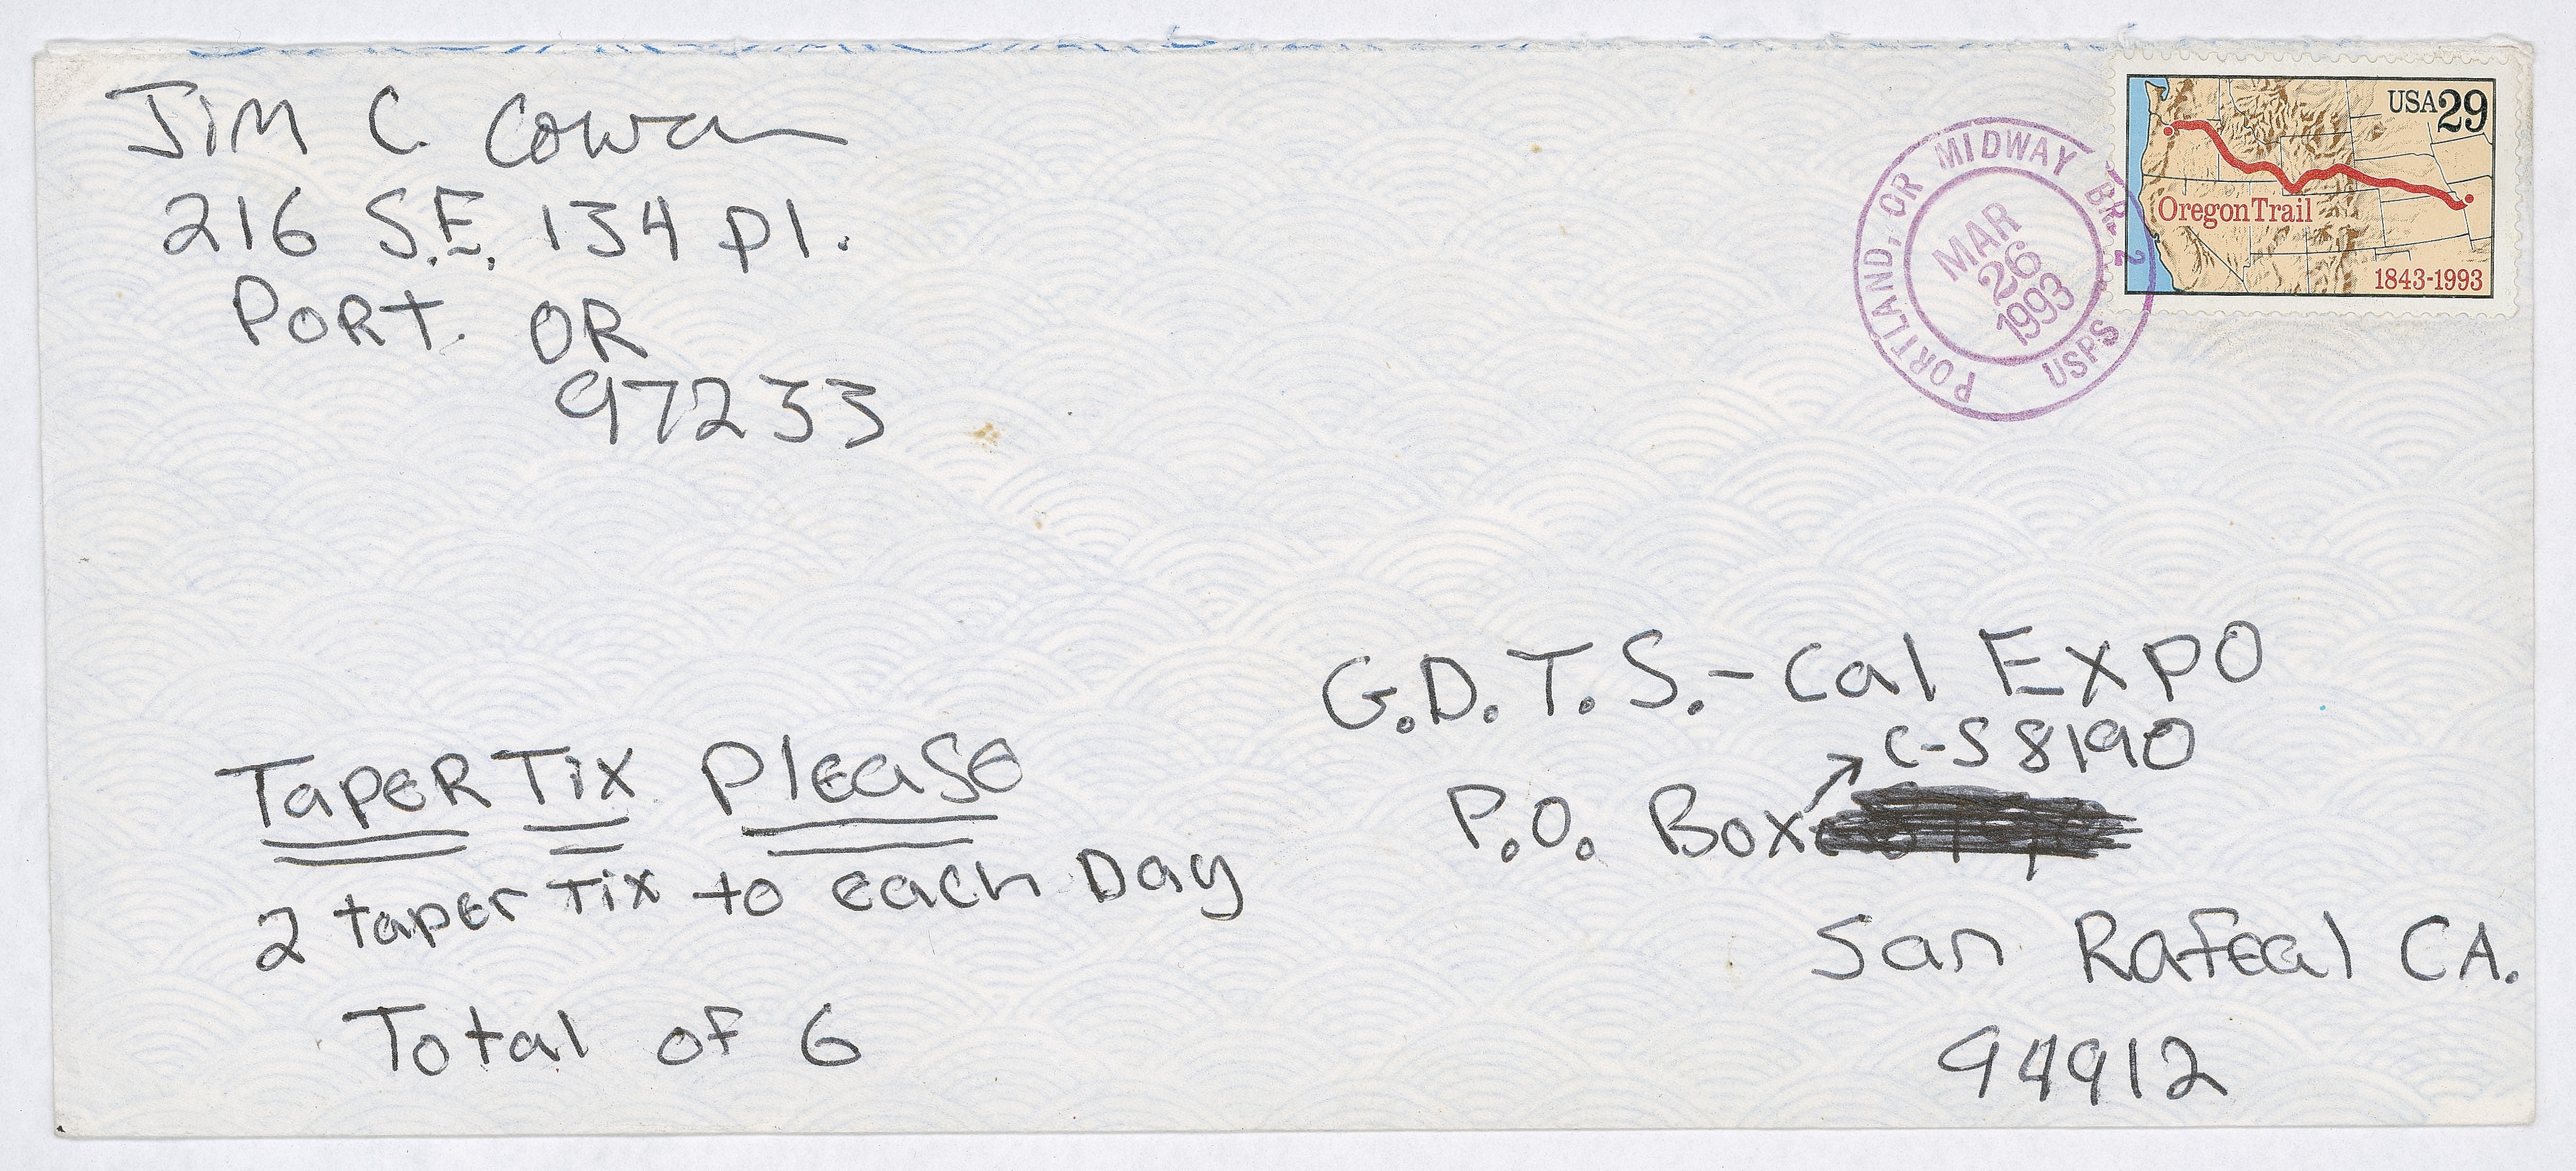 Jim C. Cowan
216 S.E. 134 Pl.
Port. OR
97233
PORTLAND, OR MIDWAY BR. 2
MAR
26
1993
USPS
USA 29
Oregon Trail
1843-1993
G.D.T.S.- Cal Expo
C-S 8190
P.O. Box
San Rafeal CA.
94912
Taper Tix Please
2 taper Tix to each Day
Total of 6